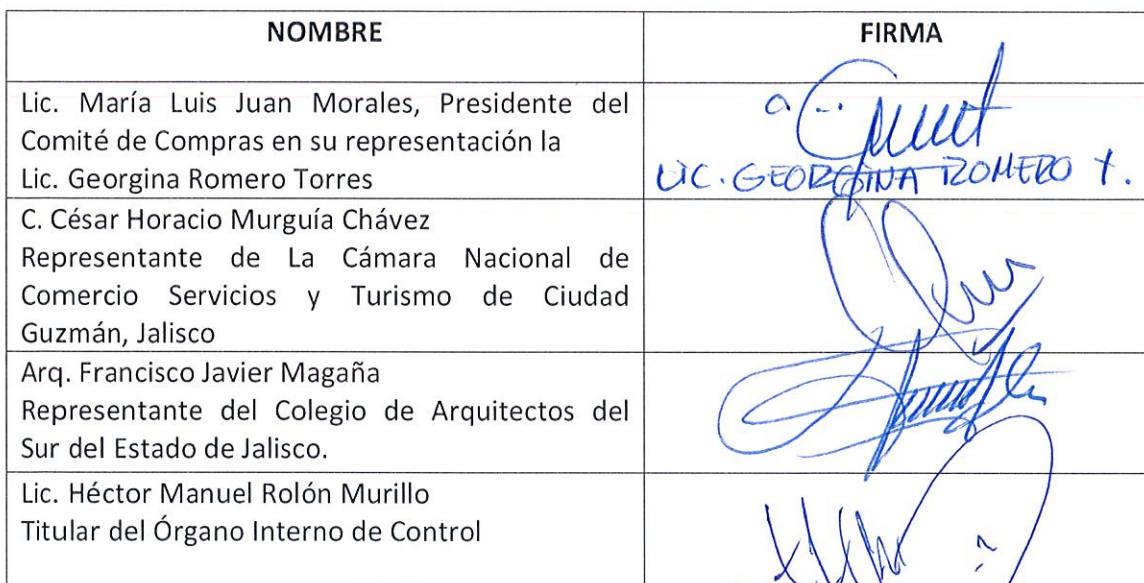 NOMBRE
FIRMA
Lic. María Luis Juan Morales, Presidente del
Comité de Compras en su representación la
Lic. Georgina Romero Torres
LIC. GEORGINA ROMERO T.
C. César Horacio Murguía Chávez
Representante de La Cámara Nacional de
Comercio Servicios y Turismo de Ciudad
Guzmán, Jalisco
Arq. Francisco Javier Magaña
Representante del Colegio de Arquitectos del
Sur del Estado de Jalisco.
Lic. Héctor Manuel Rolón Murillo
Titular del Órgano Interno de Control